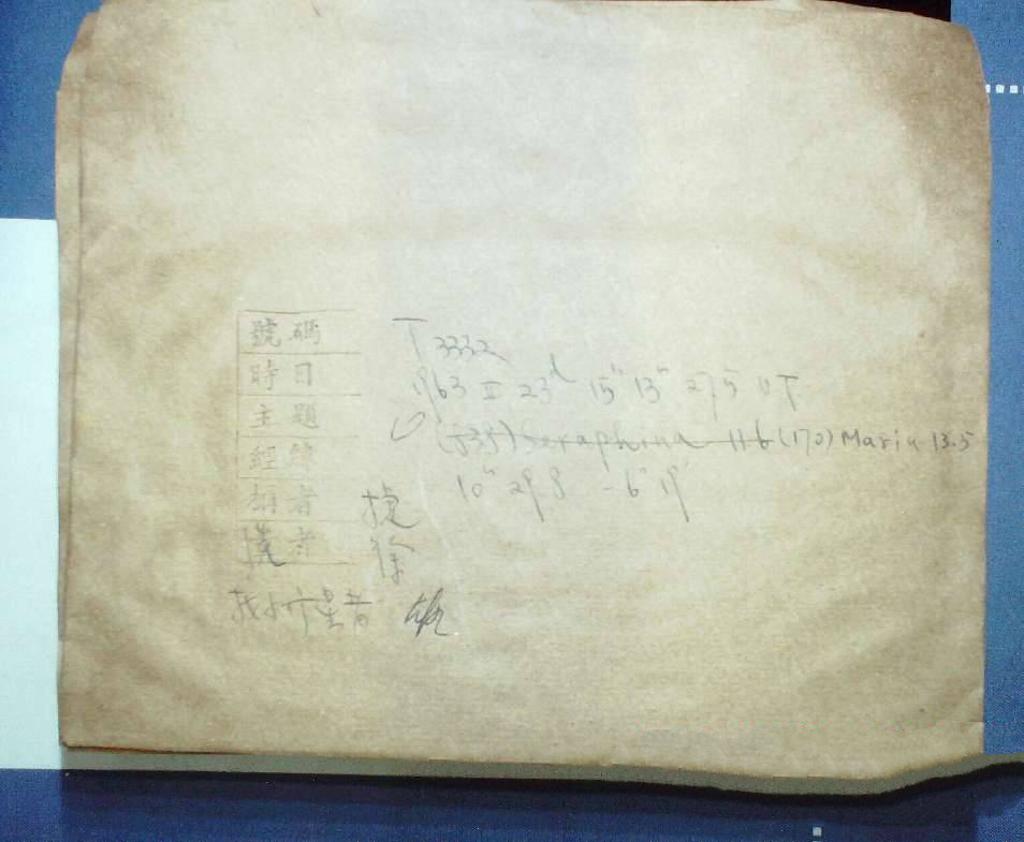 號碼 T 3332
時日 1963 II 23d 15h 13m 27.5 UT
主題 (535) Seraphina 11.6 (170) Maria 13.5
經緯 10h 29.8 -6° 19'
拍者
者 徐
找小行星者